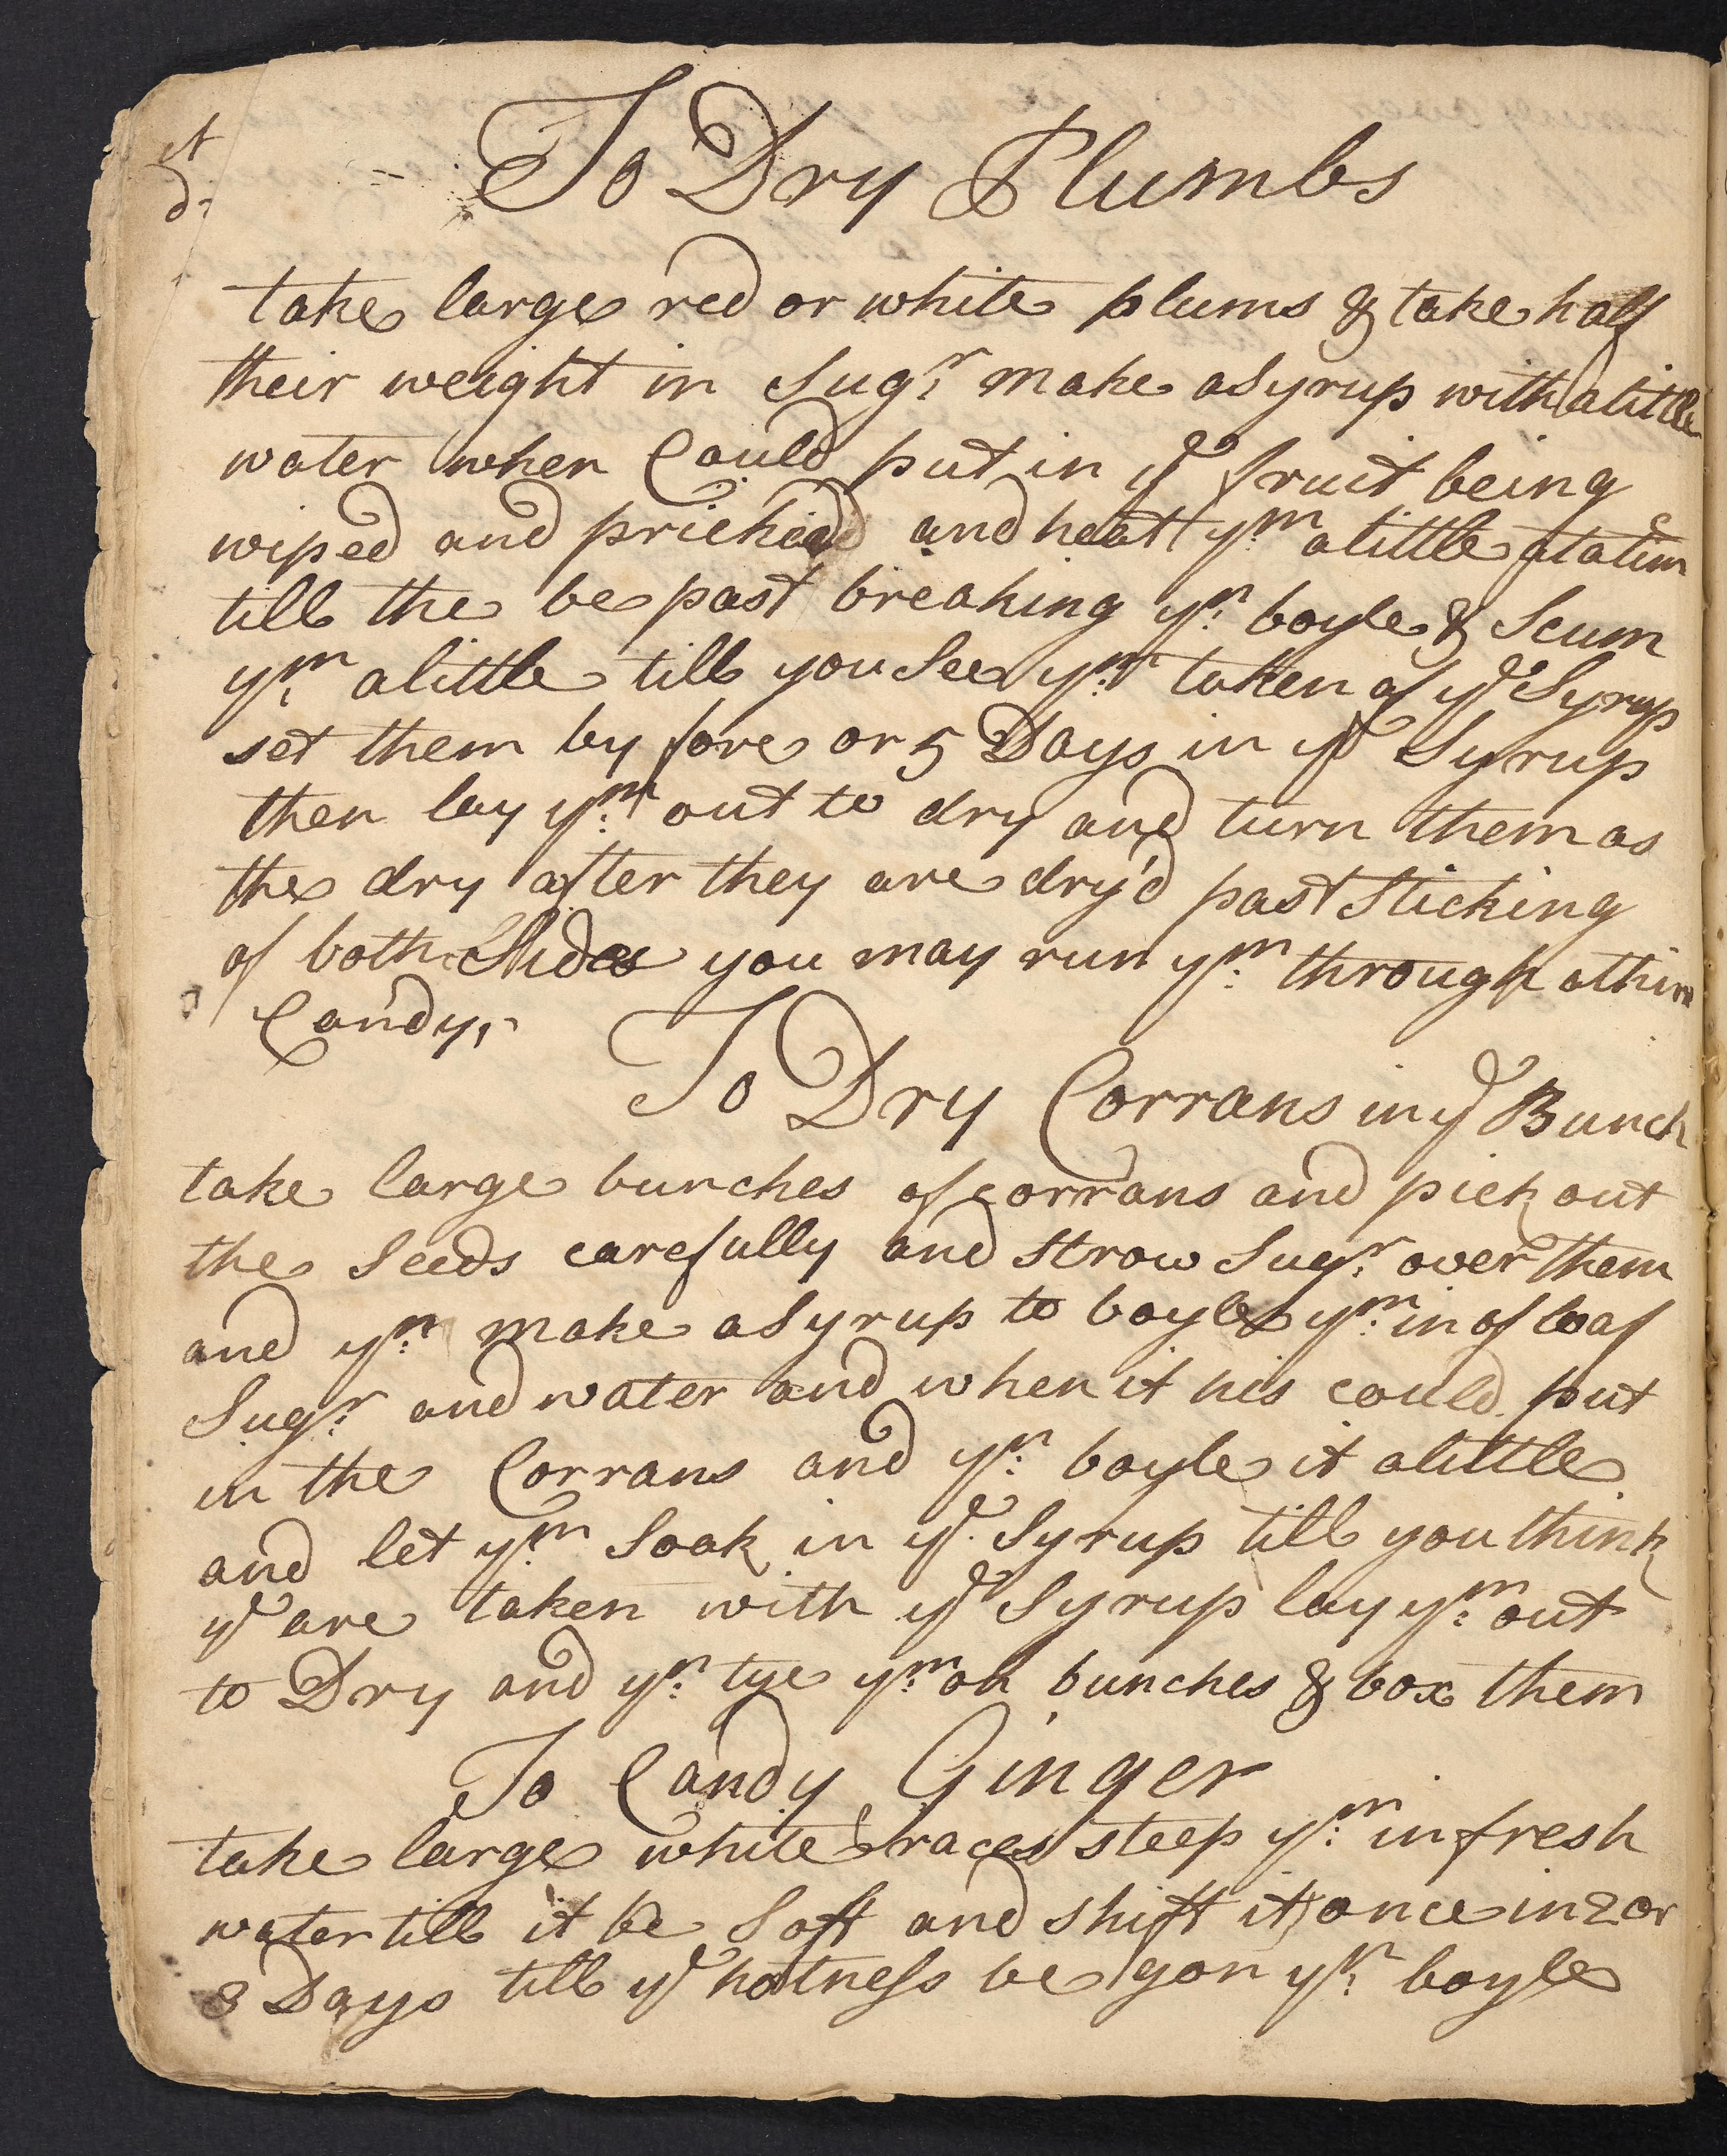 To Dry Plumbs
take large red or white plums & take half
their weight in Sugr make a Syrup with a little
water when Could put in ye fruit being
wiped and pricked and heat ym a little at a tim
till the be past breaking yn boyle & Scum
ym a little till you See ym taken of ye Syrup
set them by fore or 5 Days in ye Syrup
then lay ym out to dry and turn them as
the dry after they are dry'd past Sticking
of both Sides you may run ym through a thin
Candy,
To Dry Corrans in ye Bunch
take large bunches of corrans and pick out
the Seeds carefully and Strow Sugr over them
and yn make a Syrup to boyle ym in of loaf
Sugr and water and when it his could put
in the Corrans and yn boyle it a little
and let ym Soak in ye Syrup till you think
ye are taken with ye Syrup lay ym out
to Dry and yn tye ym on bunches & box them
To Candy Ginger
take large white races steep ym in fresh
water till it be Soft and shift it once in 2 or
3 Days till ye hotness be gon yn boyle